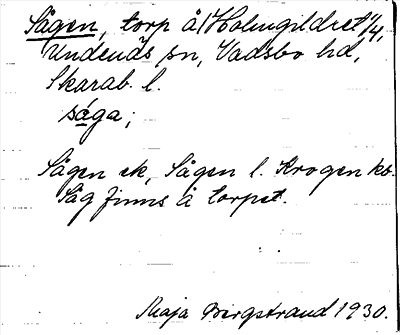 Sågen, torp å Holmgildret 1/4,
Undenäs sn, Vadsbo hd,
Skarab. l.
såga;
Sågen ek, Sågen l. Krogen kb.
Såg finns å torpet.
Maja Bergstrand 1930.